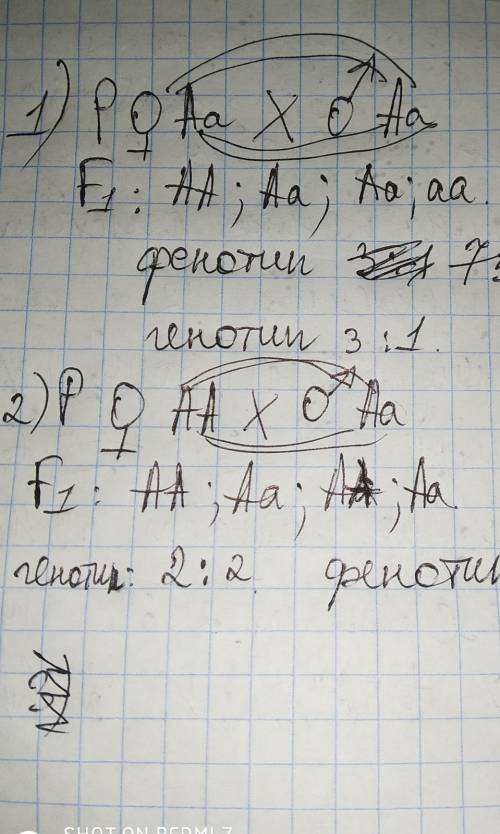 1) P ♀ Aa X ♂ Aa
F1: AA; Aa; Aa; aa.
фенотип 7
генотип 3:1.
2) P ♀ AA X ♂ Aa
F1: AA; Aa; AA; Aa
генотип: 2:2. фенотип
SHOT ON REDMI 7